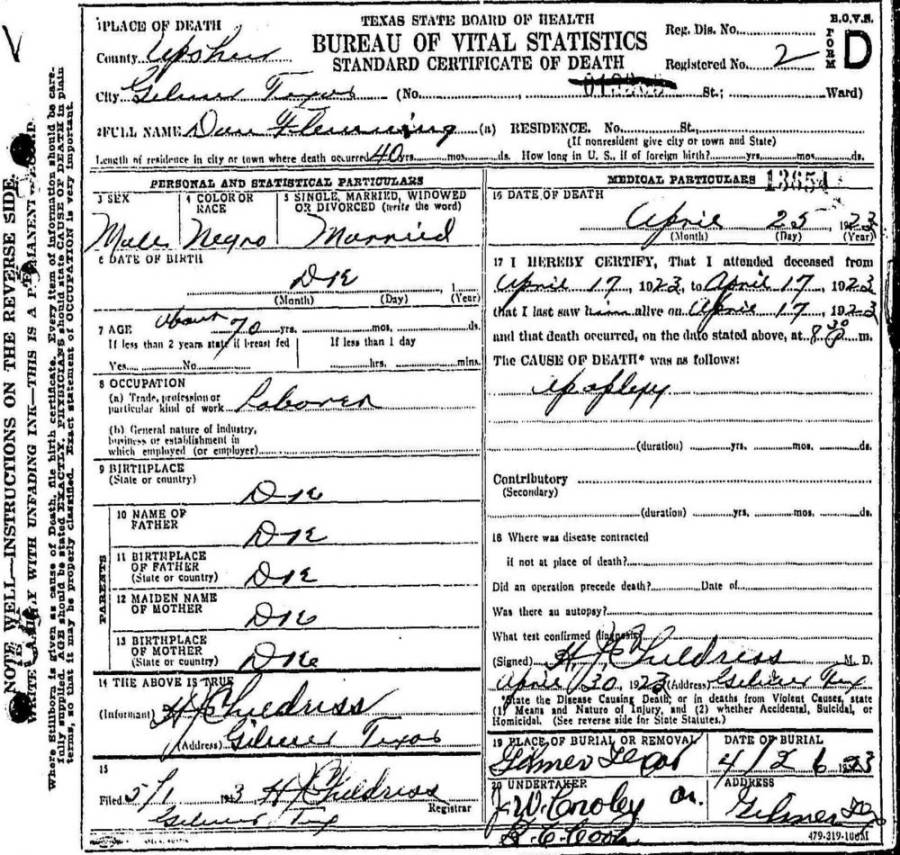 TEXAS STATE BOARD OF HEALTH
BUREAU OF VITAL STATISTICS
STANDARD CERTIFICATE OF DEATH
B.O.V.S.
FORM D
1 PLACE OF DEATH
County Upshur
City Gilmer Texas (No. St.; Ward)
Reg. Dis. No.
Registered No. 2
2 FULL NAME Dan Flemming (a) RESIDENCE. No. St.,
(If nonresident give city or town and State)
Length of residence in city or town where death occurred 40 yrs. mos. ds. How long in U. S., if of foreign birth? yrs. mos. ds.
PERSONAL AND STATISTICAL PARTICULARS
3 SEX
Male
4 COLOR OR RACE
Negro
5 SINGLE, MARRIED, WIDOWED
OR DIVORCED (write the word)
Married
6 DATE OF BIRTH
D K
(Month) (Day) (Year)
7 AGE about 70 yrs. mos. ds.
If less than 2 years state if breast fed
Yes No
If less than 1 day
hrs. mins.
8 OCCUPATION
(a) Trade, profession or
particular kind of work Laborer
(b) General nature of industry,
business or establishment in
which employed (or employer)
9 BIRTHPLACE
(State or country) D K
PARENTS
10 NAME OF
FATHER D K
11 BIRTHPLACE
OF FATHER
(State or country) D K
12 MAIDEN NAME
OF MOTHER D K
13 BIRTHPLACE
OF MOTHER
(State or country) D K
14 THE ABOVE IS TRUE
(Informant) H J Childress
(Address) Gilmer Texas
15
Filed 5/1 23 H J Childress
Registrar
Gilmer Tex
MEDICAL PARTICULARS 13654
16 DATE OF DEATH
April 25 1923
(Month) (Day) (Year)
17 I HEREBY CERTIFY, That I attended deceased from
April 17, 1923, to April 17, 1923
that I last saw h alive on April 17, 1923
and that death occurred, on the date stated above, at 8 30 P m.
The CAUSE OF DEATH* was as follows:
Apoplexy
(duration) yrs. mos. ds.
Contributory
(Secondary)
(duration) yrs. mos. ds.
18 Where was disease contracted
if not at place of death?
Did an operation precede death? Date of
Was there an autopsy?
What test confirmed diagnosis
(Signed) H J Childress M. D.
April 30, 1923 (Address) Gilmer Tex
*State the Disease Causing Death, or in deaths from Violent Causes, state
(1) Means and Nature of Injury, and (2) whether Accidental, Suicidal, or
Homicidal. (See reverse side for State Statutes.)
19 PLACE OF BURIAL OR REMOVAL
Gilmer Texas
DATE OF BURIAL
4/26 1923
20 UNDERTAKER
J. W. Croley or
R. E. Cook
ADDRESS
Gilmer Tex
479-319-100M
NOTE WELL—INSTRUCTIONS ON THE REVERSE SIDE.
WRITE PLAINLY WITH UNFADING INK—THIS IS A PERMANENT RECORD.
Where stillborn is given as cause of Death, file birth certificate. Every item of information should be care-
fully supplied. AGE should be stated EXACTLY. PHYSICIANS should state CAUSE OF DEATH in plain
terms, so that it may be properly classified. Exact statement of OCCUPATION is very important.